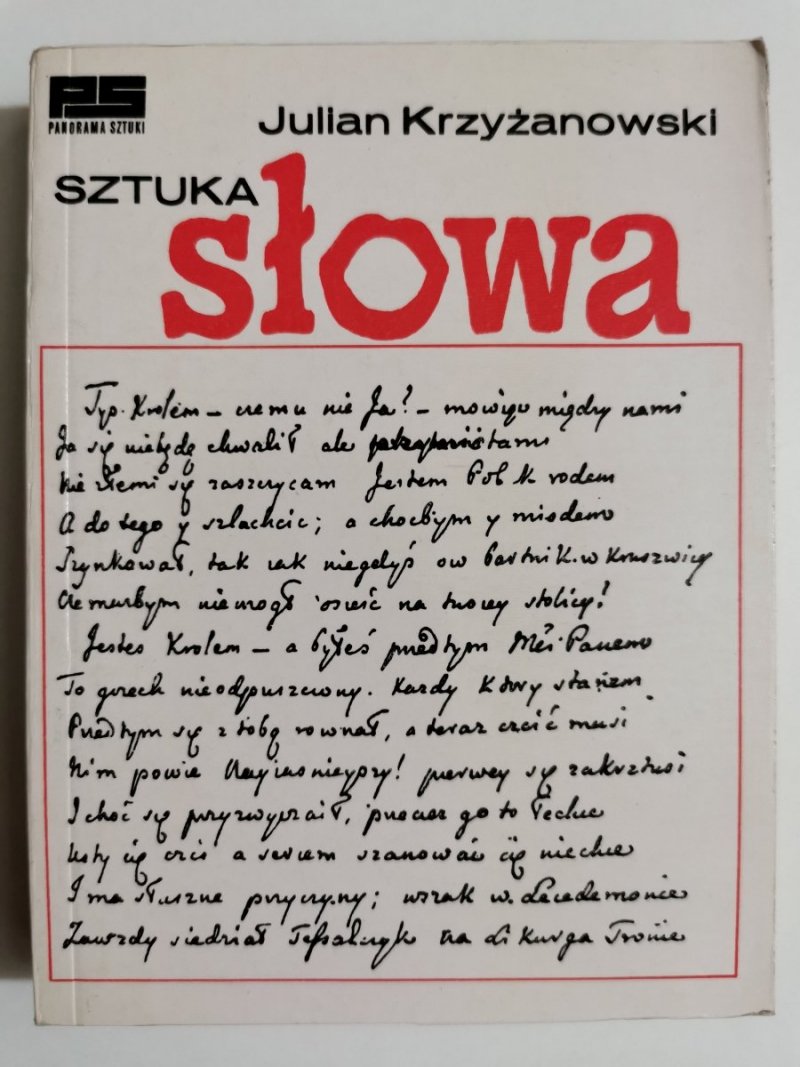 PS
PANORAMA SZTUKI
Julian Krzyżanowski
SZTUKA
słowa
Tyś Krolem – czemu nie Ja? – mowiąc między nami
Ja się niebędę chwalił ale
Nie złemi się zaszczycam Jestem rodem
A do tego y szlachcic; a chocbym y miodem
Szynkował, tak iak niegdyś ow bartnik w Kruszwicy
Czemużbym niemogł osieść na twoiey stolicy?
Jesteś Krolem – a byłeś przedtym Mści Panem
To grzech nieodpuszczony. Kazdy ktory stanem
Przedtym się z tobą rownał, a teraz czcić musi
Nim powie Nayiasnieyszy! pierwey się zakrztusi
I choć się przyzwyczaił, przecież go to łechce
Usty cię czci a sercem szanować cię niechce
I ma słuszne przyczyny; wszak w Lacedemonie
Zawzdy siedział Tessalczyk na Likurga Tronie